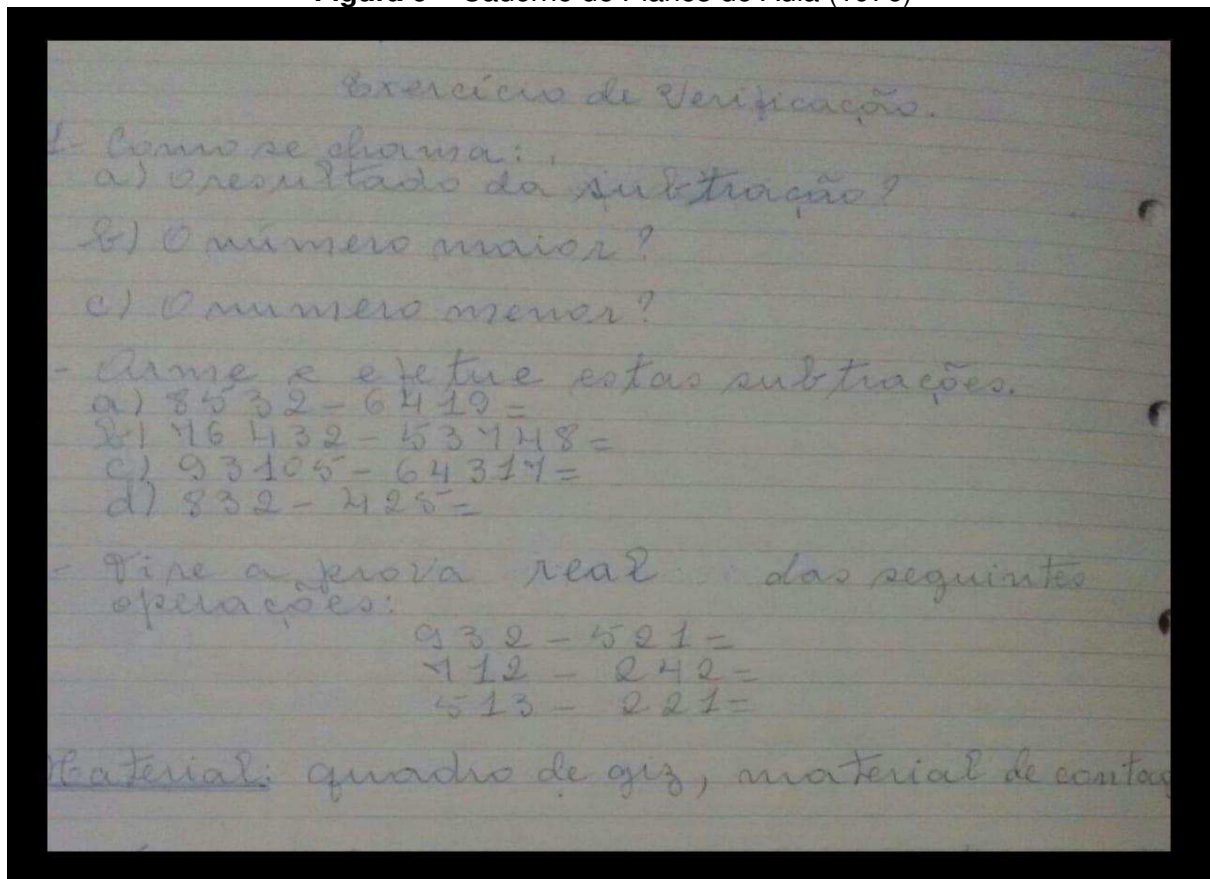 Exercício de Verificação.
1- Como se chama:
a) O resultado da subtração?
b) O número maior?
c) O numero menor?
- Arme e efetue estas subtrações.
a) 8532 - 6419 =
b) 76432 - 53748 =
c) 93105 - 64317 =
d) 832 - 425 =
- Tire a prova real das seguintes
operações:
932 - 521 =
712 - 242 =
513 - 221 =
Material: quadro de giz, material de contag